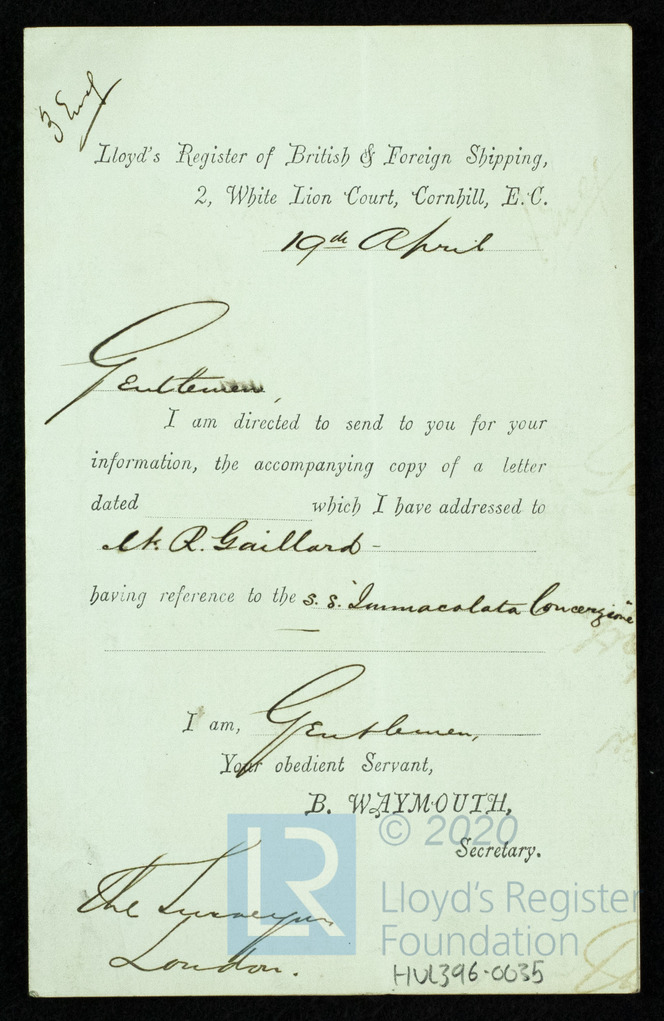 3 Encl
Lloyd's Register of British & Foreign Shipping,
2, White Lion Court, Cornhill, E.C.
19th April
Gentlemen,
I am directed to send to you for your
information, the accompanying copy of a letter
dated which I have addressed to
Mr. R. Gaillard -
having reference to the s.s. "Immacolata Concezione"
I am, Gentlemen,
Your obedient Servant,
B. WAYMOUTH,
Secretary.
The Surveyors
London.
LR
© 2020
Lloyd's Register
Foundation
HUL396-0035